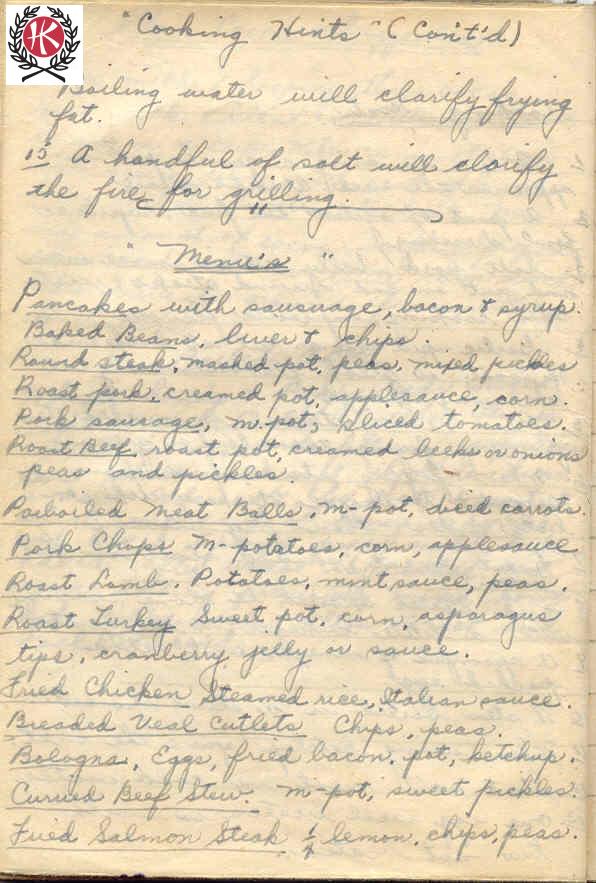 HK
"Cooking Hints" (Con't'd)
Boiling water will clarify frying
fat.
15 A handful of salt will clarify
the fire for grilling.
"Menu's"
Pancakes with sausuage, bacon & syrup.
Baked Beans, liver & chips.
Round steak, mashed pot, peas, mixed pickles
Roast pork, creamed pot, applesauce, corn.
Pork sausage, m. pot, sliced tomatoes.
Roast Beef, roast pot, creamed leeks or onions
peas and pickles.
Parboiled Meat Balls, m-pot, diced carrots.
Pork Chops M-potatoes, corn, applesauce
Roast Lamb. Potatoes, mint sauce, peas.
Roast Turkey Sweet pot, corn, asparagus
tips, cranberry jelly or sauce.
Fried Chicken Steamed rice, Italian sauce.
Breaded Veal Cutlets Chips, peas.
Bologna, Eggs, fried bacon, pot, ketchup.
Curried Beef Stew. m-pot, sweet pickles.
Fried Salmon Steak lemon, chips, peas.